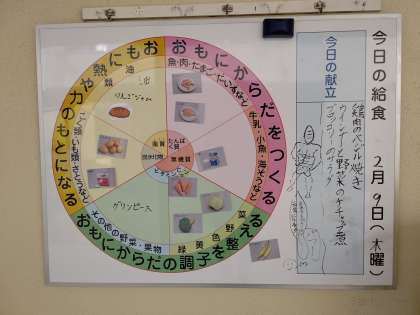 今日の給食　2月9日(木曜)
今日の献立
鶏肉のバジル焼き
ウインナーと野菜のケチャップ煮
ブロッコリーのサラダ
おもにからだをつくる
魚・肉・たまご・だいずなど
牛乳・小魚・海そうなど
おもにからだの調子を整える
緑黄色野菜
その他の野菜・果物
おもに熱や力のもとになる
こく類・いも類・さとうなど
油脂類
油
りんごジャム
グリンピース
脂質
たんぱく質
炭水化物
無機質
ビタミン